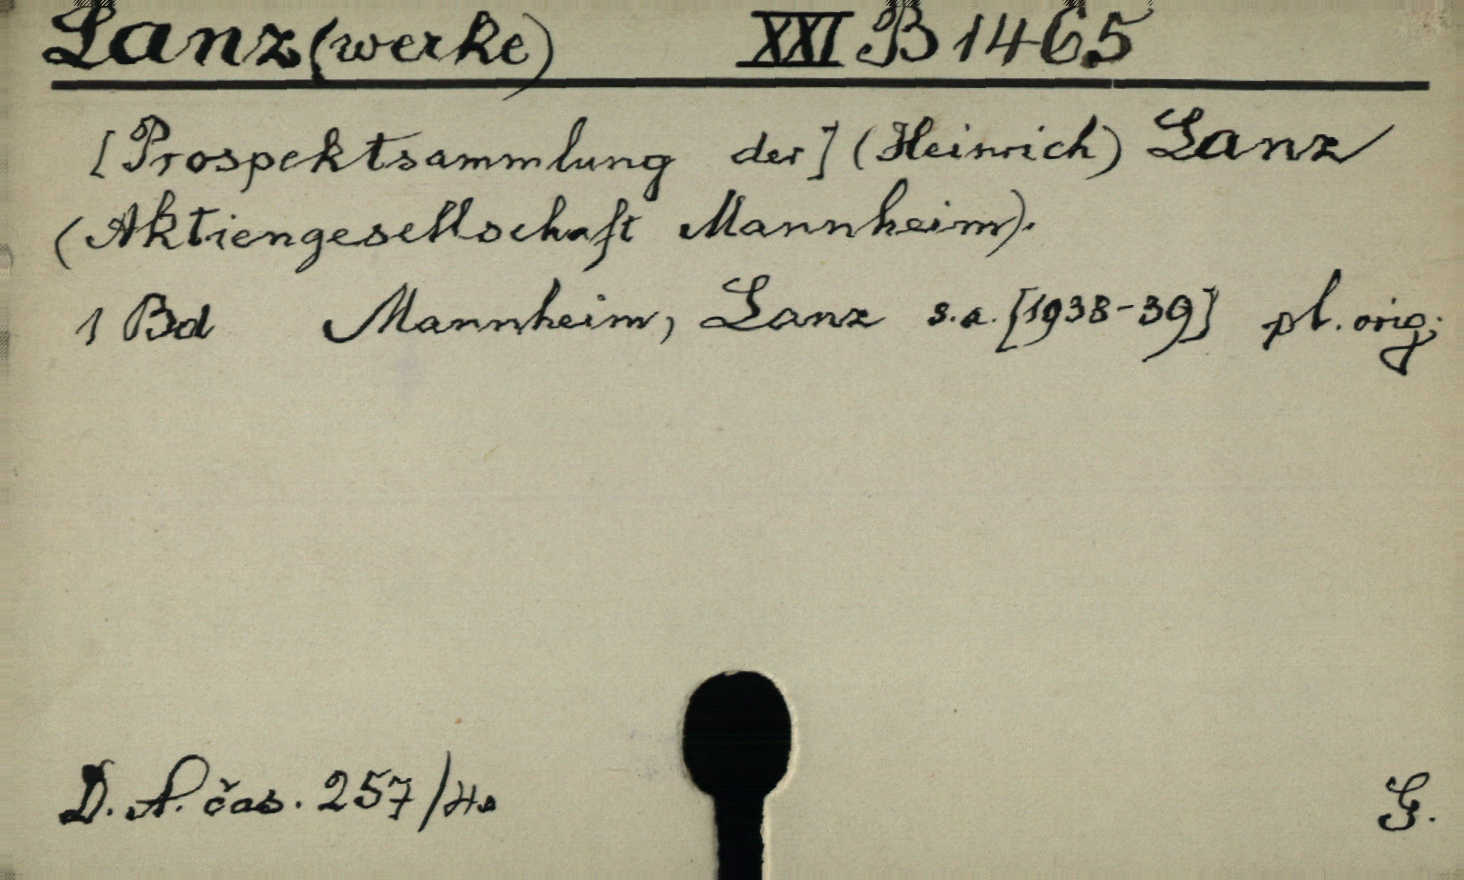 Lanz(werke) XXI B 1465
[Prospektsammlung der] (Heinrich) Lanz
(Aktiengesellschaft Mannheim).
1 Bd Mannheim, Lanz s.a. [1938-39] pl. orig.
D. A. čas. 257/40
G.